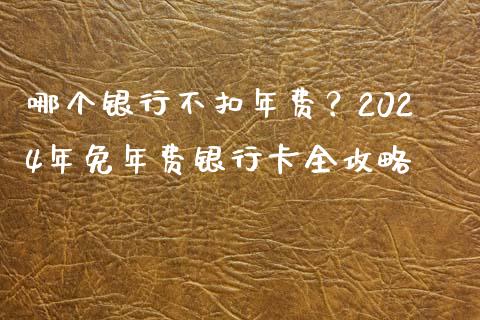 哪个银行不扣年费？202
4年免年费银行卡全攻略